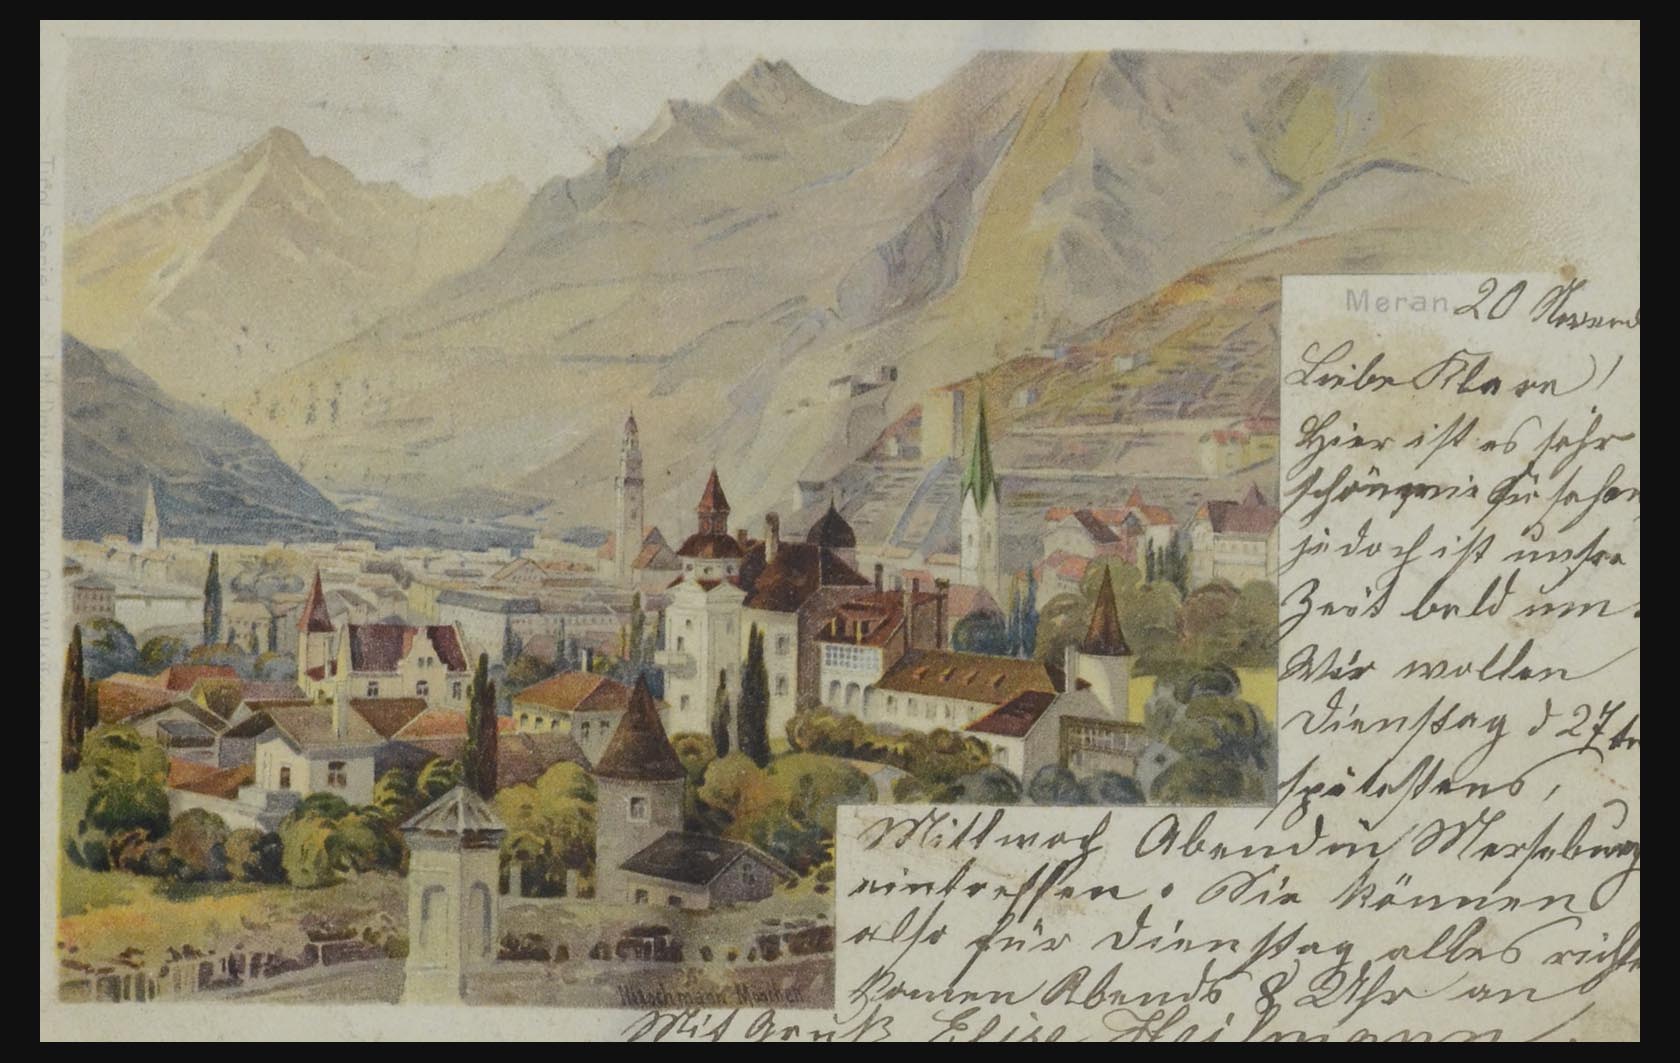 Meran 20 Novemb
Liebe Klare!
Hier ist es sehr
schön, wie Sie sehen
jedoch ist unsre
Zeit bald um.
Wir wollen
Dienstag d 27ten
spätestens,
Mittwoch Abend in Merseburg
eintreffen. Sie können
also für Dienstag alles richten
komen Abends 8 Uhr an
Mit Gruß Elise Heilmann.
Nitschmann München